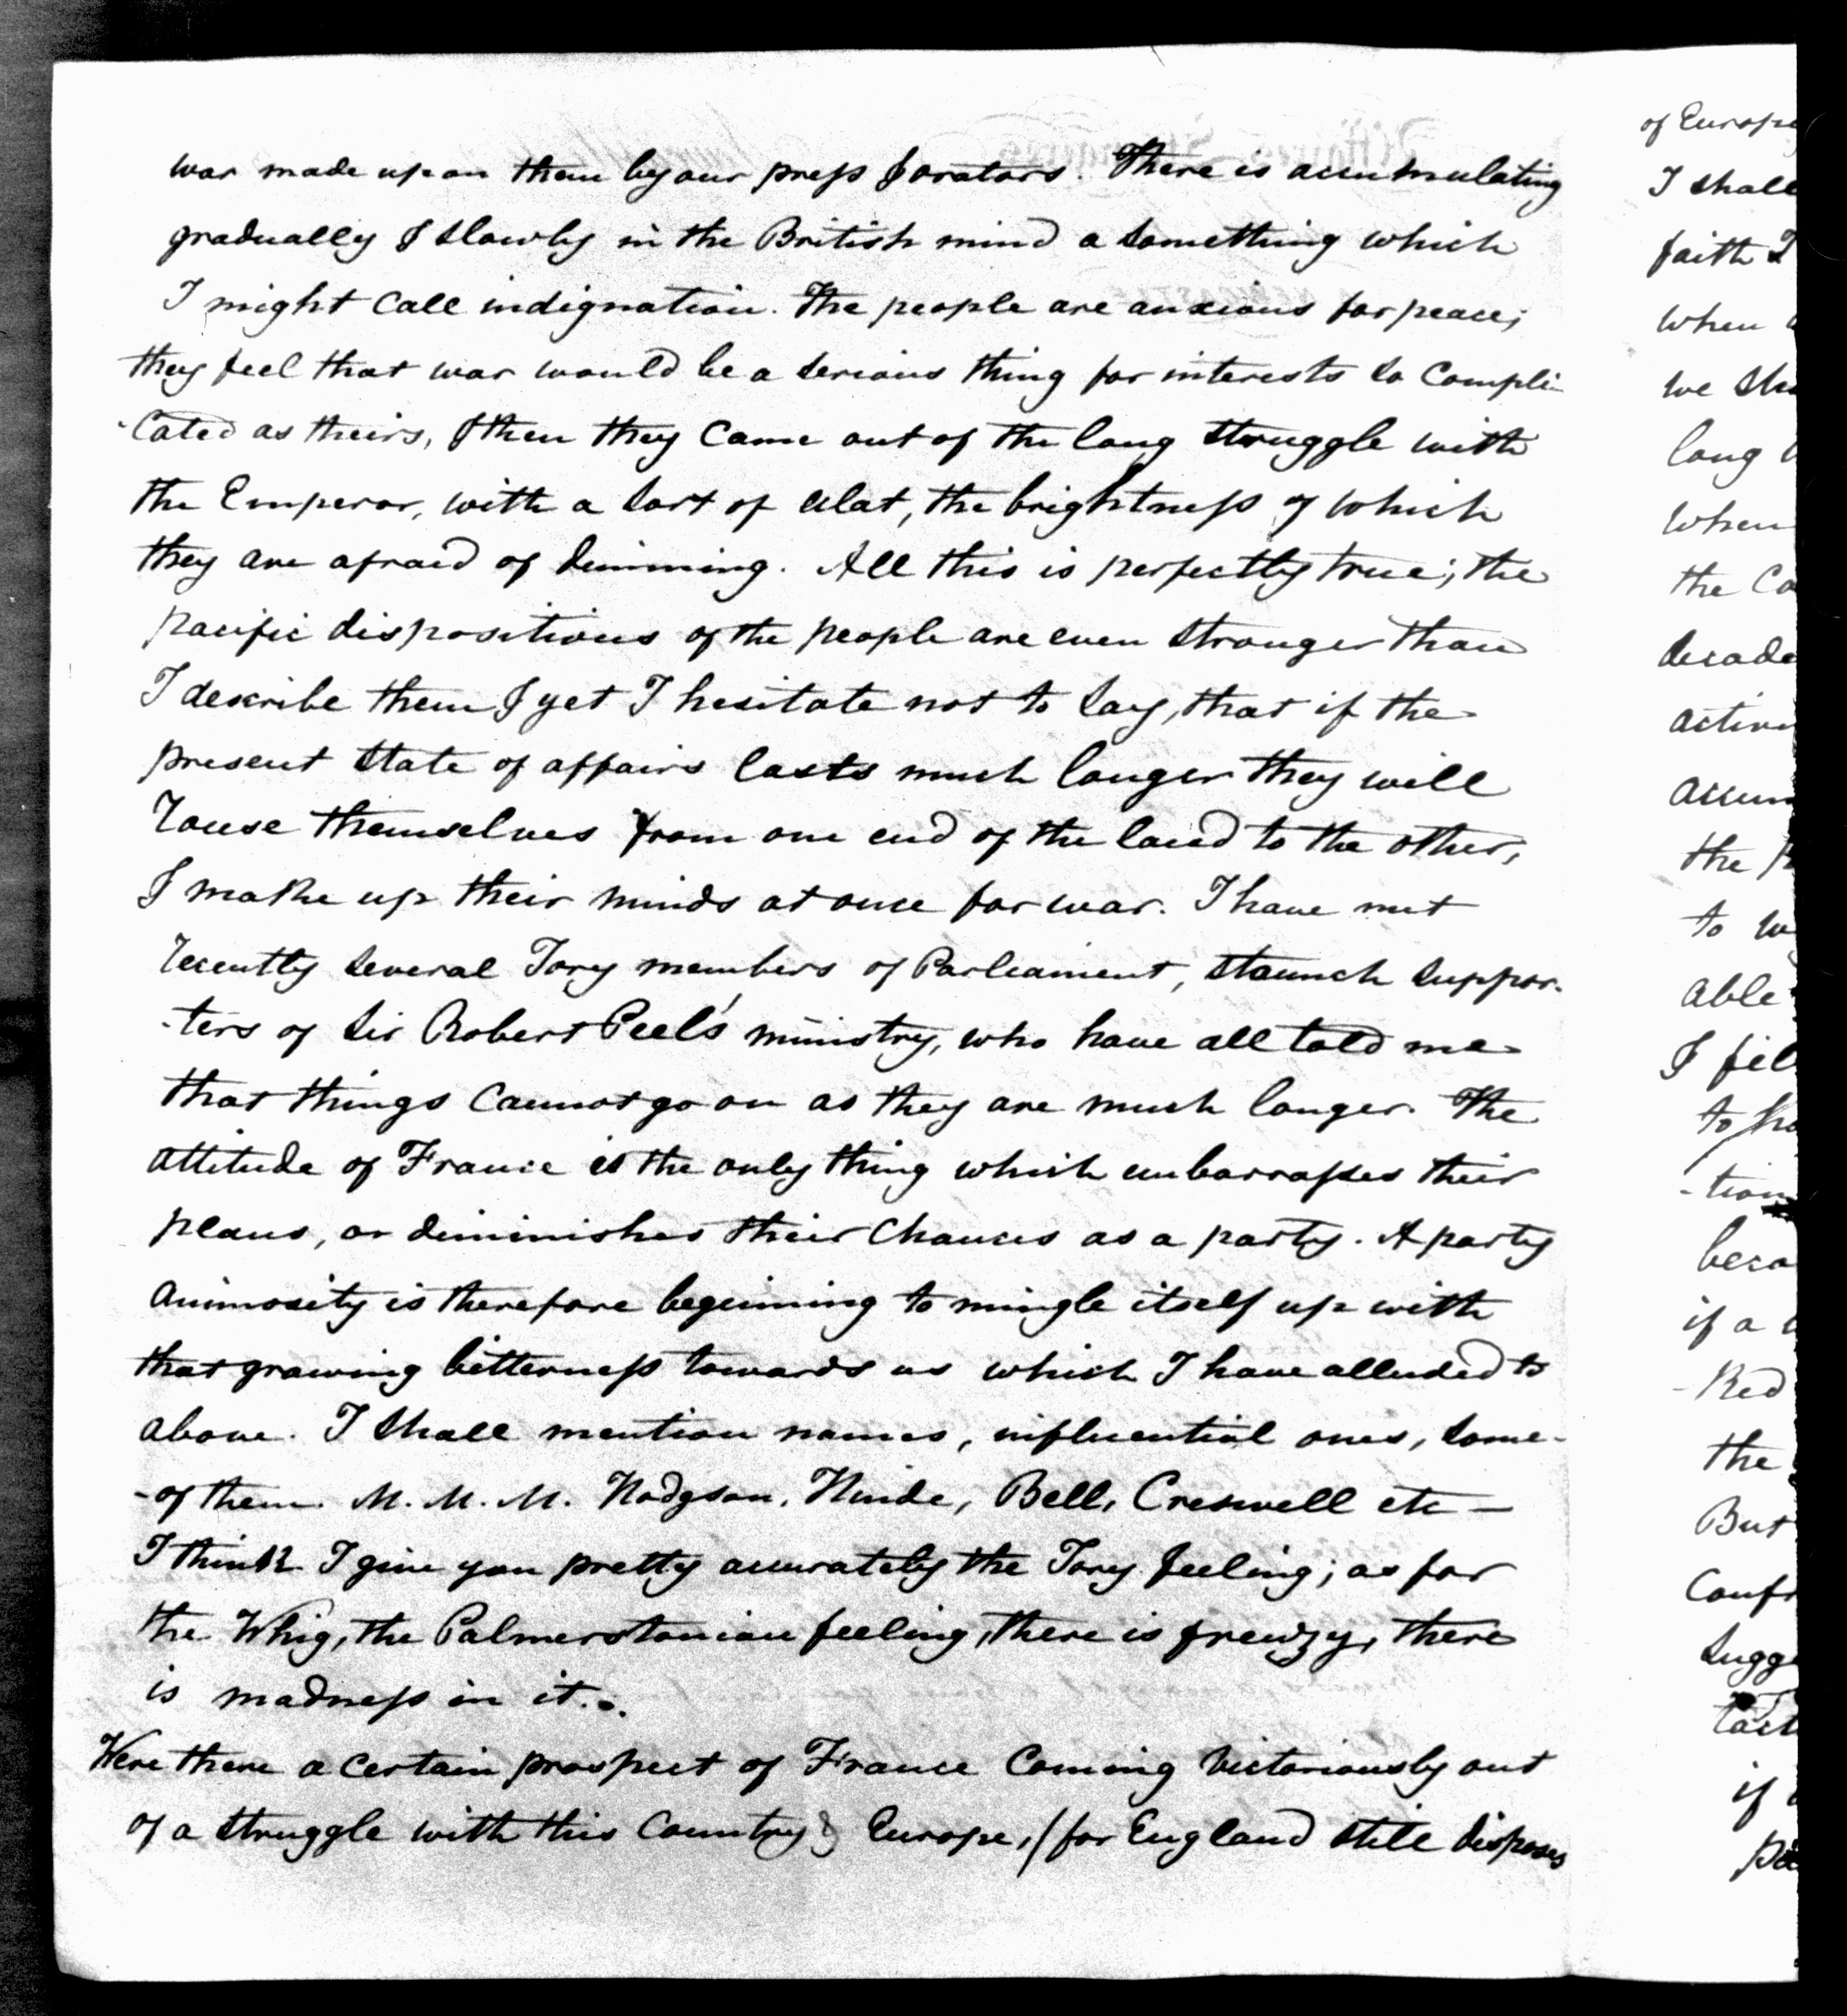 war made upon them by our press & orators. There is accumulating
gradually & slowly in the British mind a something which
I might call indignation. The people are anxious for peace;
they feel that war would be a serious thing for interests so compli-
-cated as theirs, & then they came out of the long struggle with
the Emperor, with a sort of eclat, the brightness of which
they are afraid of dimming. All this is perfectly true; the
pacific dispositions of the people are even stronger than
I describe them & yet I hesitate not to say, that if the
present state of affairs lasts much longer they will
rouse themselves from one end of the land to the other,
& make up their minds at once for war. I have met
recently several Tory members of Parliament, staunch suppor-
-ters of Sir Robert Peel's ministry, who have all told me
that things cannot go on as they are much longer. The
attitude of France is the only thing which embarrasses their
plans, or diminishes their chances as a party. A party
animosity is therefore beginning to mingle itself up with
that growing bitterness towards us which I have alluded to
above. I shall mention names, influential ones, some-
-of them. M. M. M. Hodgson, Hinde, Bell, Creswell etc —
I think I give you pretty accurately the Tory feeling; as for
the Whig, the Palmerstonian feeling, there is frenzy, there
is madness in it..
Were there a certain prospect of France coming victoriously out
of a struggle with this Country & Europe, (for England still disposes
of Europe
I shall
faith I
when
we
long
when
the
the
to
able
I
to
-tion
if a
the
But
if